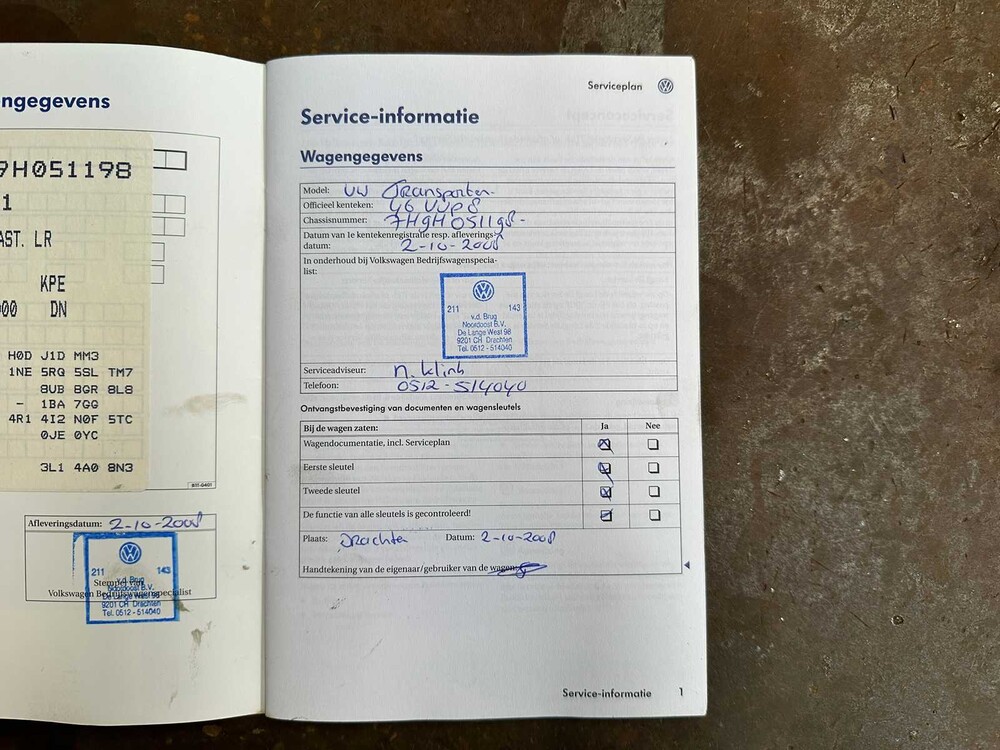 ngegevens
9H051198
1
AST. LR
KPE
00 DN
H0D J1D MM3
1NE 5RQ 5SL TM7
8UB 8GR 8L8
- 1BA 7GG
4R1 4I2 N0F 5TC
0JE 0YC
3L1 4A0 8N3
Afleveringsdatum: 2-10-2008
211 143
v.d. Brug
Noordoost B.V.
De Lange West 98
9201 CH Drachten
Tel. 0512 - 514040
Stempel van
Volkswagen Bedrijfswagenspecialist
Serviceplan
Service-informatie
Wagengegevens
Model: VW Transporter
Officieel kenteken: 46 VVP8
Chassisnummer: 7H9H051198-
Datum van 1e kentekenregistratie resp. afleverings-
datum: 2-10-2008
In onderhoud bij Volkswagen Bedrijfswagenspecia-
list:
211 143
v.d. Brug
Noordoost B.V.
De Lange West 98
9201 CH Drachten
Tel. 0512 - 514040
Serviceadviseur: n. klink
Telefoon: 0512-514040
Ontvangstbevestiging van documenten en wagensleutels
Bij de wagen zaten: Ja Nee
Wagendocumentatie, incl. Serviceplan
Eerste sleutel
Tweede sleutel
De functie van alle sleutels is gecontroleerd!
Plaats: Drachten Datum: 2-10-2008
Handtekening van de eigenaar/gebruiker van de wagen:
Service-informatie 1